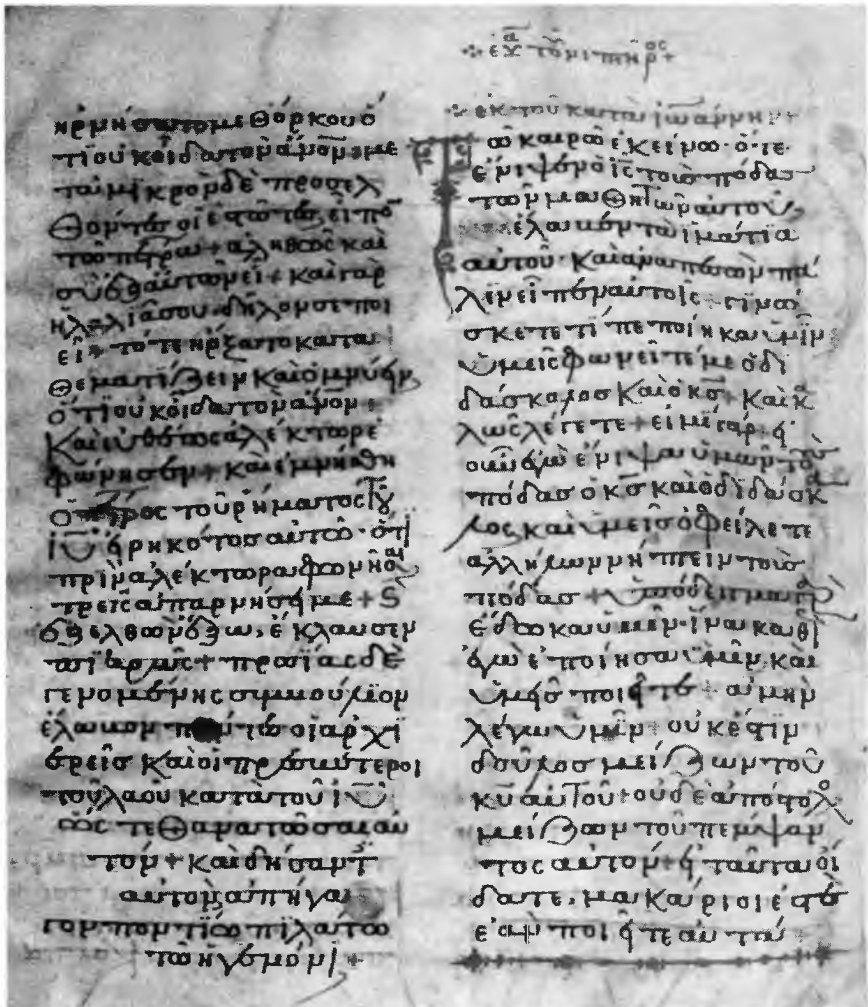 ηρνήσατο μεθ ὅρκου ὅ
τι οὐκ οἶδα τὸν ἄν̅ο̅ν̅ με
τὰ μικρὸν δὲ προσελ
θόντες οἱ ἑστῶτες εἶπο̅
τῶ πέτρω + ἀληθῶς καὶ
σὺ ἐξ αὐτῶν εἶ + καὶ γὰρ
ἡ λαλιά σου δῆλόν σε ποι
εῖ + τότε ἤρξατο κατα
θεματίζειν καὶ ὀμνύειν
ὅτι οὐκ οἶδα τὸν ἄνον +
Καὶ εὐθέως ἀλέκτωρ ἐ
φώνησεν + καὶ ἐμνήσθη
ὁ πέτρος τοῦ ῥήματος τοῦ
ἰ̅υ̅ εἰρηκότος αὐτῶ · ὅτι
πρὶν ἀλέκτορα φωνῆσαι
τρεῖς ἀπαρνήση με + ϗ
ἐξελθὼν ἔξω, ἔκλαυσεν
πικρῶς + πρωΐας δὲ
γενομένης συμβούλιον
ἔλαβον πάντες οἱ ἀρχι
ερεῖς καὶ οἱ πρεσβύτεροι
τοῦ λαοῦ κατὰ τοῦ ἰ̅υ̅
ὥστε θανατῶσαι αὐ
τόν + καὶ δήσαντ
αὐτὸν ἀπήγα
γον ποντίω πιλάτω
τῶ ἡγεμόνι +
ἐκ τοῦ κατὰ ἰωάννην +
Τῶ καιρῶ ἐκείνω · ὅτε
ἔνιψεν ὁ ι̅ς̅ τοὺς πόδας
τῶν μαθητῶν αὐτοῦ,
ἔλαβεν τὰ ἱμάτια
αὐτοῦ · καὶ ἀναπεσὼν πά
λιν εἶπεν αὐτοῖς + γινώ
σκετε τί πεποίηκα ὑμῖν
ὑμεῖς φωνεῖτέ με ὁ δι
δάσκαλος καὶ ὁ κ̅ς̅ + καὶ κα
λῶς λέγετε + εἰμὶ γάρ + εἰ
οὖν ἐγὼ ἔνιψα ὑμῶν τοὺς
πόδας ὁ κ̅ς̅ καὶ ὁ διδάσκα
λος καὶ ὑμεῖς ὀφείλετε
ἀλλήλων νίπτειν τοὺς
πόδας + ὑπόδειγμα γὰρ
ἔδωκα ὑμῖν · ἵνα καθὼ
ἐγὼ ἐποίησα ὑμῖν, καὶ
ὑμεῖς ποιῆτε + ἀμὴν
λέγω ὑμῖν + οὐκ ἔστιν
δοῦλος μείζων τοῦ
κ̅υ̅ αὐτοῦ + οὐδὲ ἀπόστολο
μείζων τοῦ πέμψαν
τος αὐτόν + εἰ ταῦτα οἴ
δατε, μακάριοί ἐστε
ἐὰν ποιῆτε αὐτά +